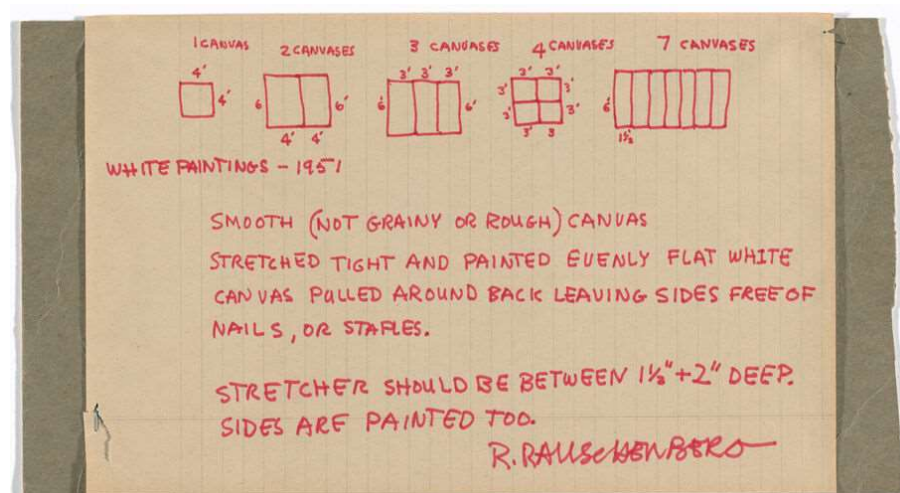 1 CANVAS 2 CANVASES 3 CANVASES 4 CANVASES 7 CANVASES
4' 3' 3' 3' 3' 3'
4' 6 6' 6 6' 3' 3' 6'
3' 3'
4' 4' 3' 3 1½
WHITE PAINTINGS - 1951
SMOOTH (NOT GRAINY OR ROUGH) CANVAS
STRETCHED TIGHT AND PAINTED EVENLY FLAT WHITE
CANVAS PULLED AROUND BACK LEAVING SIDES FREE OF
NAILS, OR STAPLES.
STRETCHER SHOULD BE BETWEEN 1½"+2" DEEP.
SIDES ARE PAINTED TOO.
R. RAUSCHENBERG